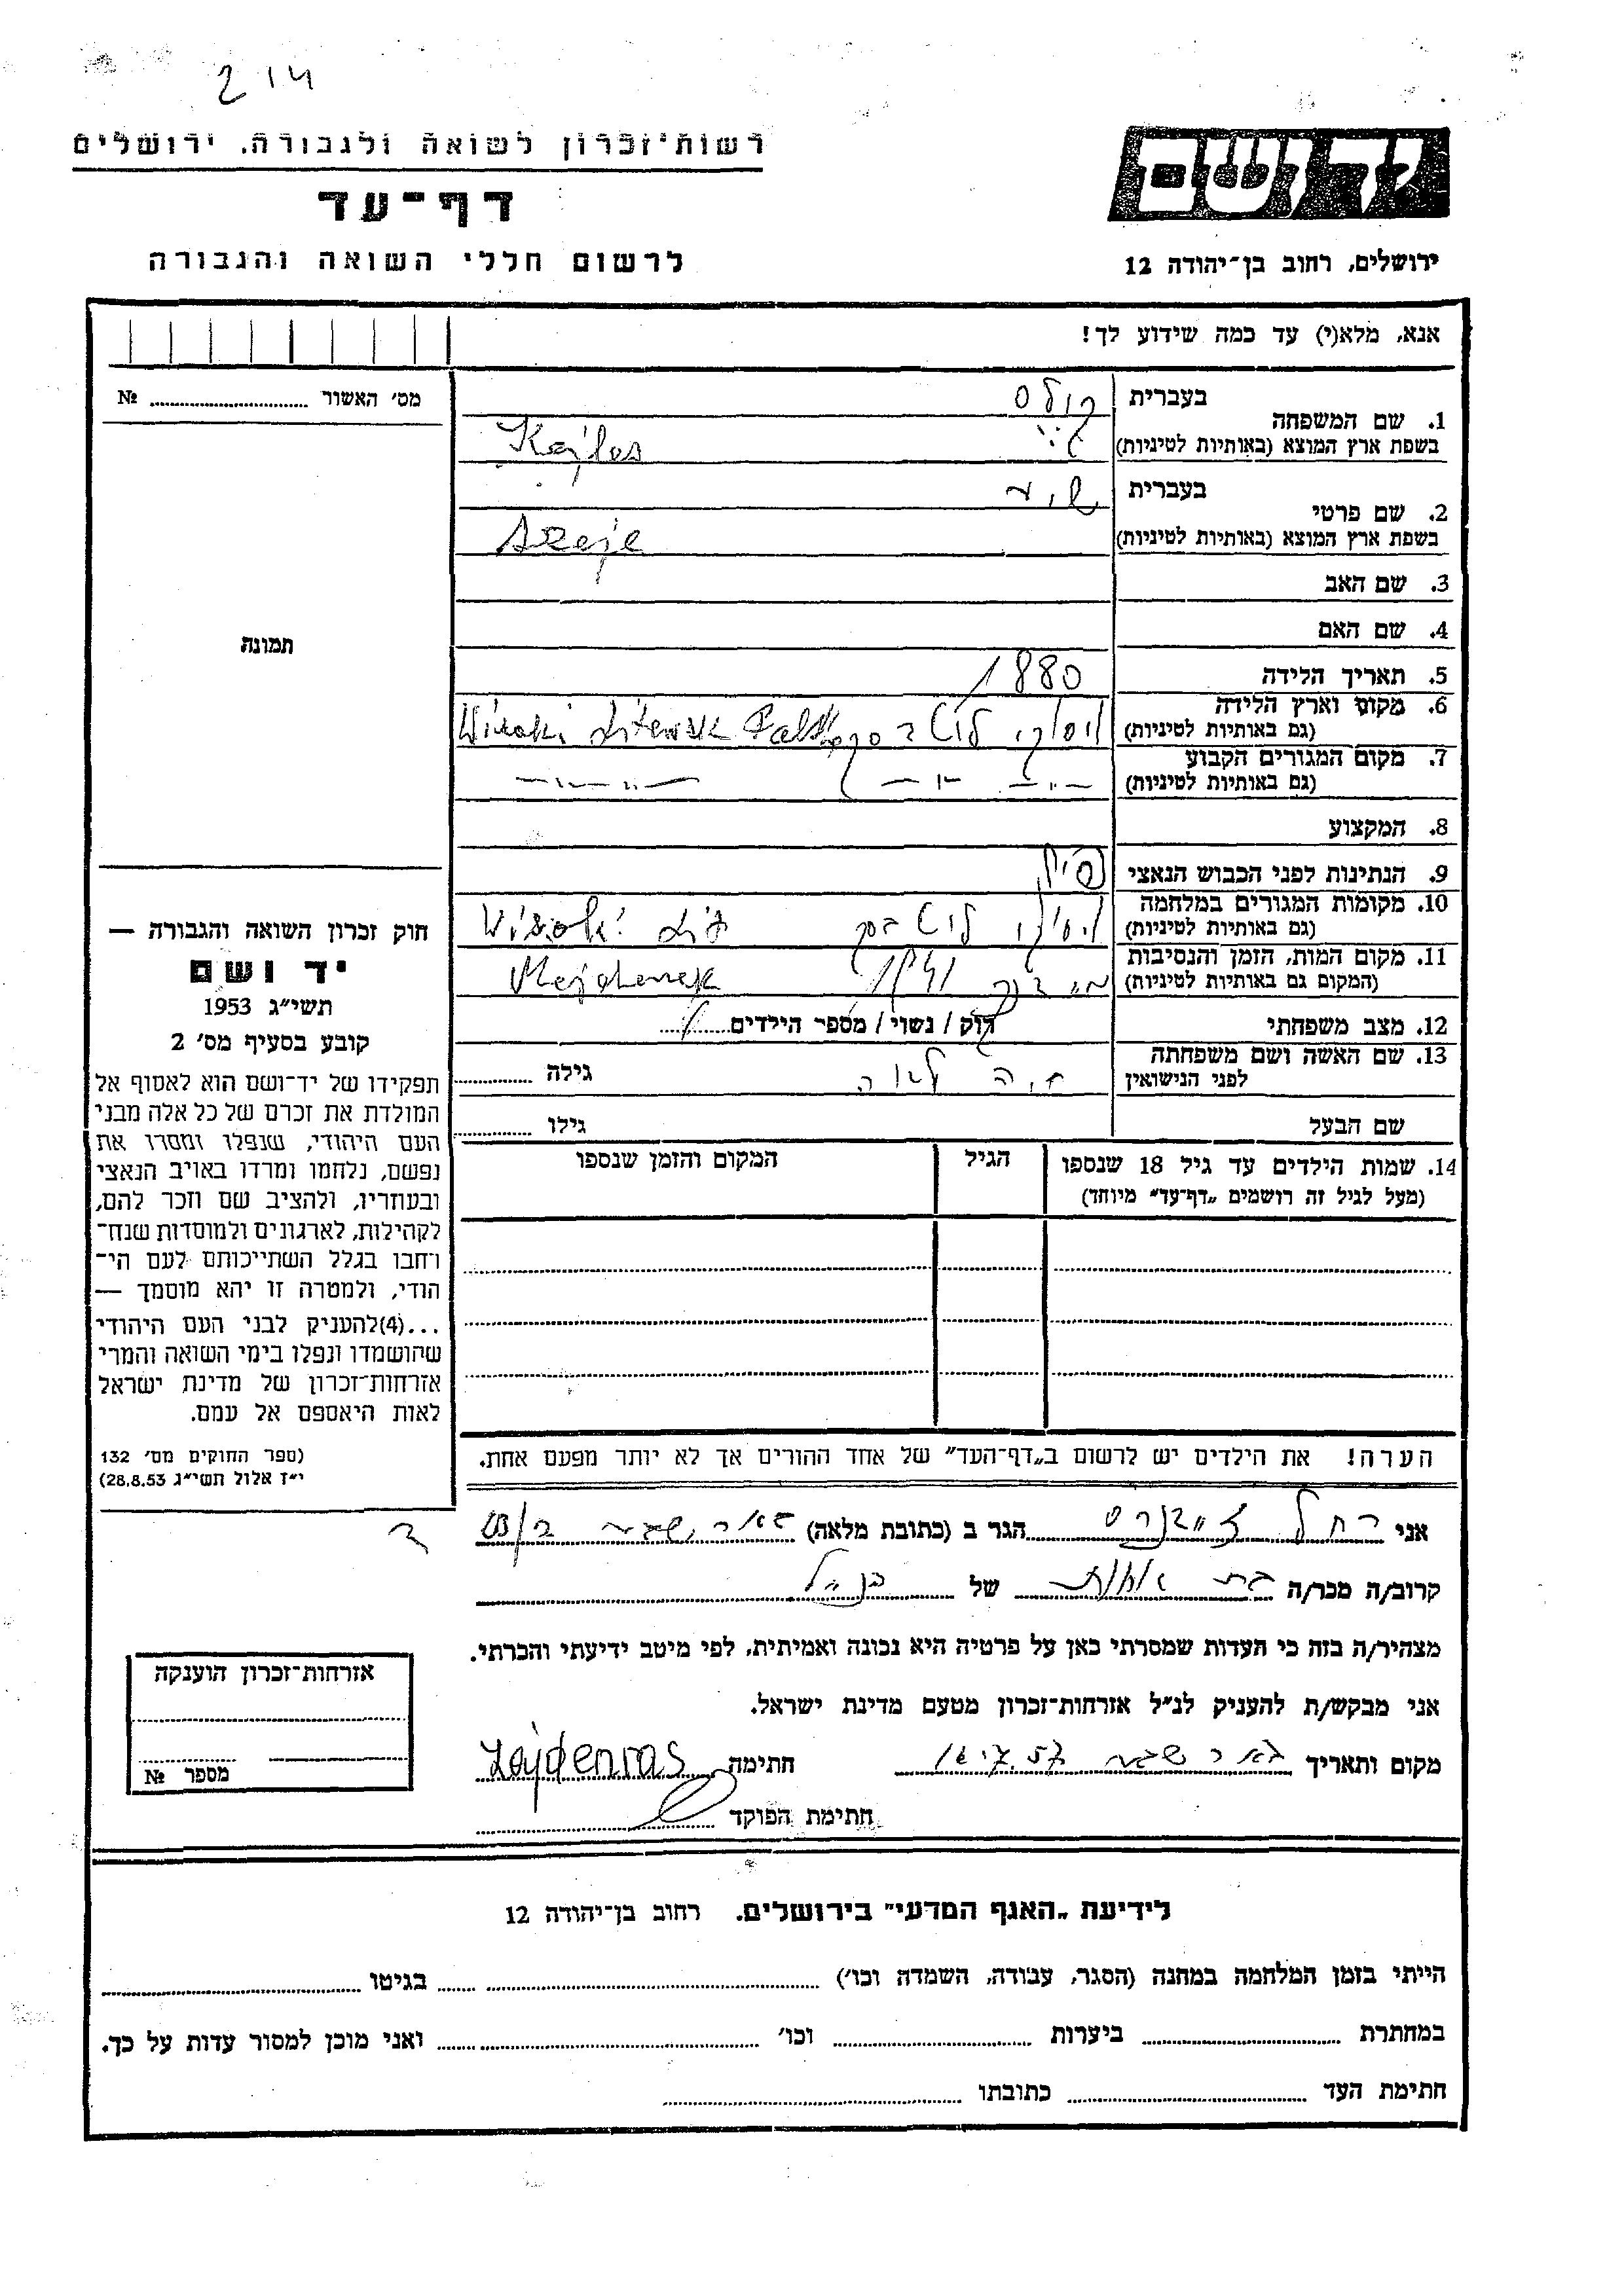 214
רשות־זכרון לשואה ולגבורה, ירושלים
דף־עד
לרשום חללי השואה והגבורה
יד ושם
ירושלים, רחוב בן־יהודה 12
אנא, מלא(י) עד כמה שידוע לך!
מס׳ האשור № ............
תמונה
1. שם המשפחה
בעברית
בשפת ארץ המוצא (באותיות לטיניות) Kajles
2. שם פרטי
בעברית
בשפת ארץ המוצא (באותיות לטיניות)
3. שם האב
4. שם האם
5. תאריך הלידה 1880
6. מקום וארץ הלידה
(גם באותיות לטיניות) Wisoki Litewsk
7. מקום המגורים הקבוע
(גם באותיות לטיניות) — ״ — ״ —
8. המקצוע
9. הנתינות לפני הכבוש הנאצי פולין
10. מקומות המגורים במלחמה
(גם באותיות לטיניות)
11. מקום המות, הזמן והנסיבות
(המקום גם באותיות לטיניות) Majdanek
12. מצב משפחתי רוק / נשוי / מספר הילדים
13. שם האשה ושם משפחתה
לפני הנישואין חיה לאה גילה
שם הבעל גילו
14. שמות הילדים עד גיל 18 שנספו הגיל המקום והזמן שנספו
(מעל לגיל זה רושמים „דף־עד״ מיוחד)
חוק זכרון השואה והגבורה —
יד ושם
תשי״ג 1953
קובע בסעיף מס׳ 2
תפקידו של יד־ושם הוא לאסוף אל
המולדת את זכרם של כל אלה מבני
העם היהודי, שנפלו ומסרו את
נפשם, נלחמו ומרדו באויב הנאצי
ובעוזריו, ולהציב שם וזכר להם,
לקהילות, לארגונים ולמוסדות שנח־
רחבו בגלל השתייכותם לעם הי־
הודי, ולמטרה זו יהא מוסמך —
...(4)להעניק לבני העם היהודי
שהושמדו ונפלו בימי השואה והמרי
אזרחות־זכרון של מדינת ישראל
לאות היאספם אל עמם.
(ספר החוקים מס׳ 132
י״ז אלול תשי״ג 28.8.53)
הערה! את הילדים יש לרשום ב„דף־העד״ של אחד ההורים אך לא יותר מפעם אחת.
אני רחל הגר ב (כתובת מלאה) באר שבע
קרוב/ה מכר/ה בת אחות של
מצהיר/ה בזה כי העדות שמסרתי כאן על פרטיה היא נכונה ואמיתית, לפי מיטב ידיעתי והכרתי.
אני מבקש/ת להעניק לנ״ל אזרחות־זכרון מטעם מדינת ישראל.
מקום ותאריך באר שבע חתימה Zajdenras
חתימת הפוקד
אזרחות־זכרון הוענקה
מספר №
לידיעת „האגף המדעי״ בירושלים. רחוב בן־יהודה 12
הייתי בזמן המלחמה במחנה (הסגר, עבודה, השמדה וכו׳) בגיטו
במחתרת ביערות וכו׳ ואני מוכן למסור עדות על כך.
חתימת העד כתובתו